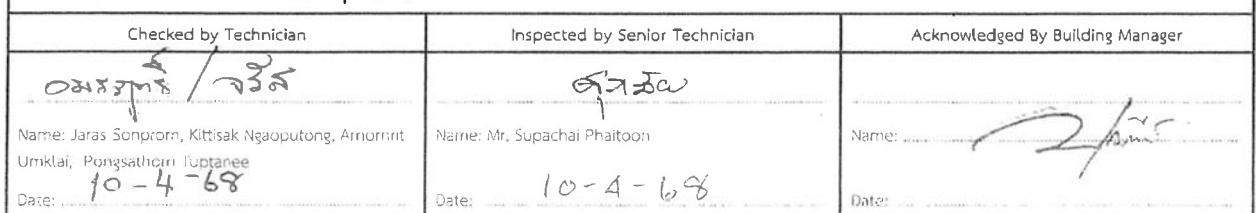 Checked by Technician
Inspected by Senior Technician
Acknowledged By Building Manager
อมรฤทธิ์ / จรัส
ศุภชัย
Name: Jaras Sonprom, Kittisak Ngaoputong, Amornrit
Umklai, Pongsathorn Tuptanee
Name: Mr. Supachai Phaitoon
Name:
Date: 10-4-68
Date: 10-4-68
Date: